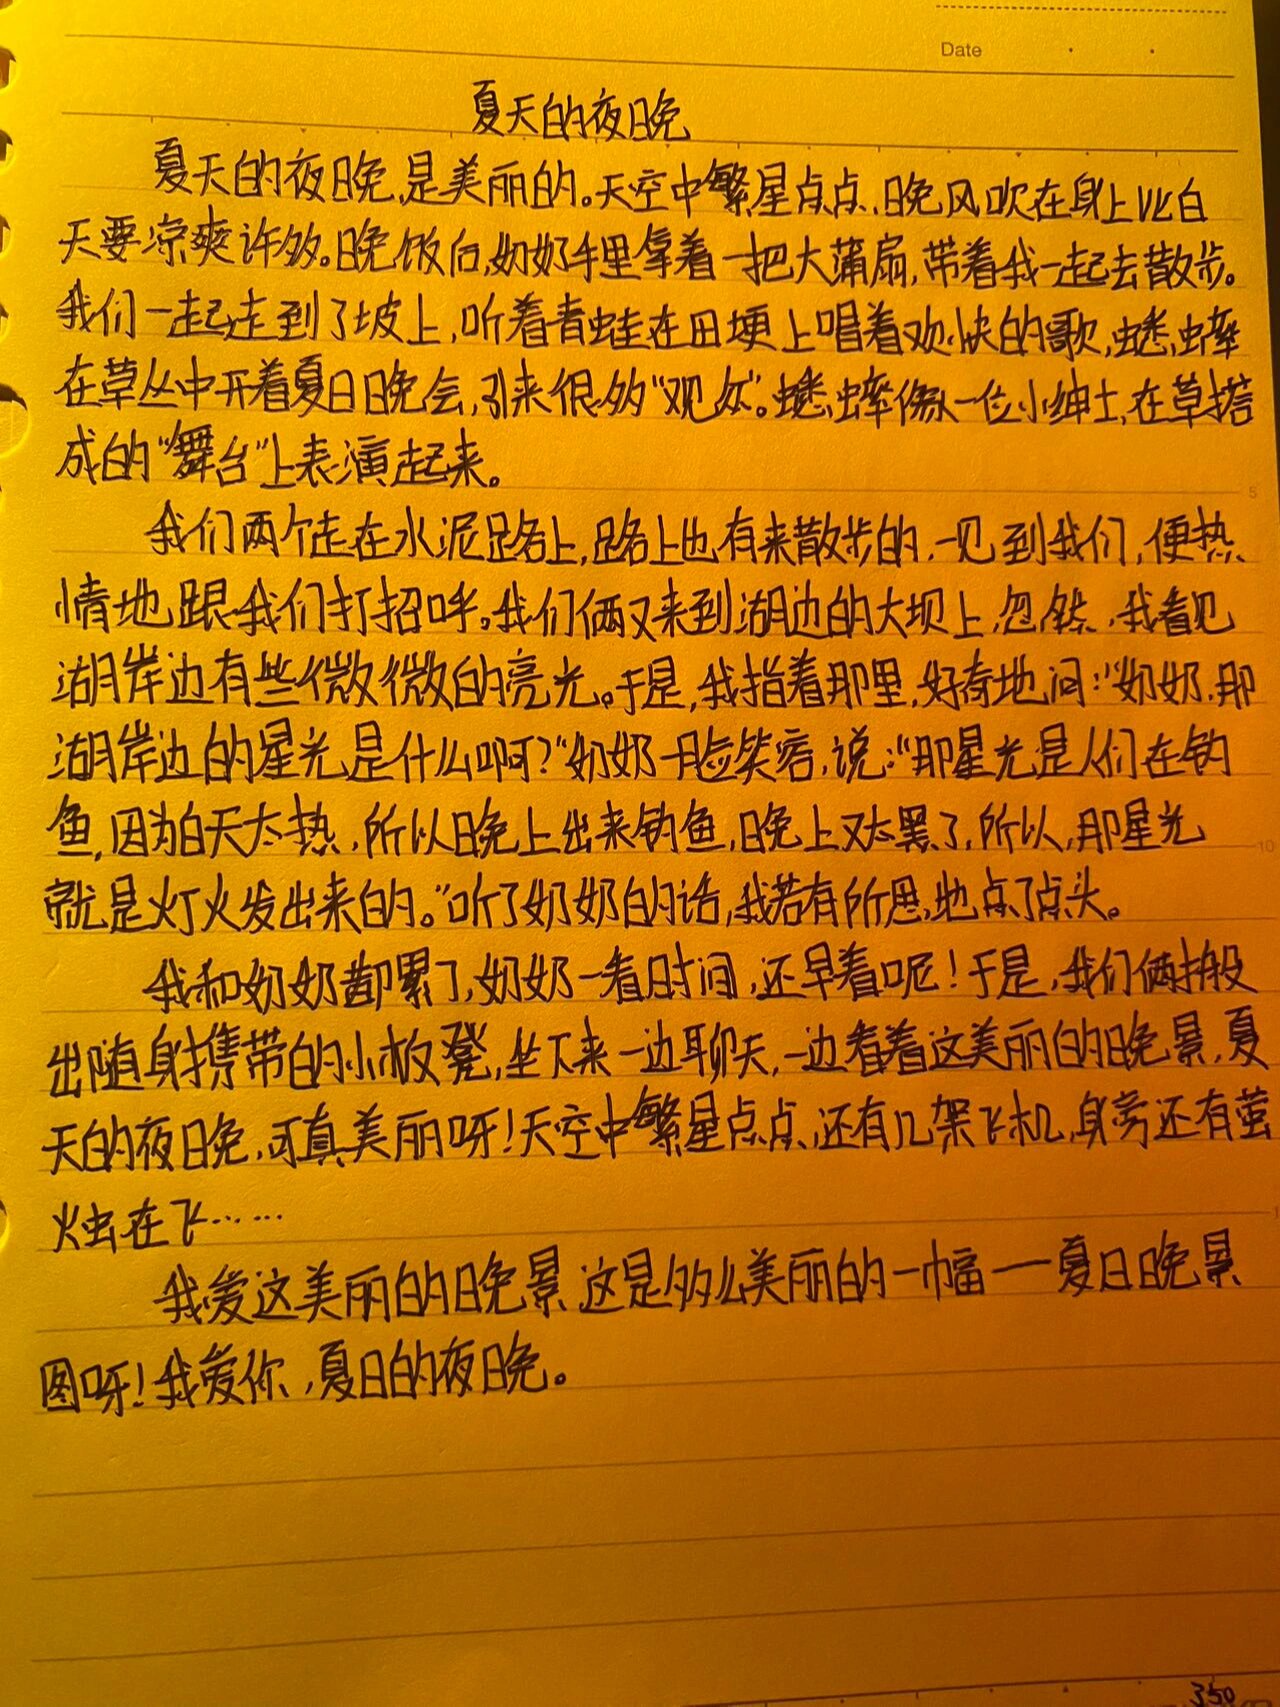 Date
夏天的夜晚
夏天的夜晚,是美丽的。天空中繁星点点,晚风吹在身上比白
天要凉爽许多。晚饭后,奶奶手里拿着一把大蒲扇,带着我一起去散步。
我们一起走到了坡上,听着青蛙在田埂上唱着欢快的歌,蟋蟀
在草丛中开着夏日晚会,引来很多“观众”。蟋蟀像一位小绅士,在草搭
成的“舞台”上表演起来。
我们两个走在水泥路上,路上也有来散步的,一见到我们,便热
情地跟我们打招呼。我们俩又来到湖边的大坝上,忽然,我看见
湖岸边有些微微的亮光。于是,我指着那里,好奇地问:“奶奶,那
湖岸边的星光是什么啊?”奶奶一脸笑容,说:“那星光是人们在钓
鱼,因为白天太热,所以晚上出来钓鱼,晚上又太黑了,所以,那星光
就是灯火发出来的。”听了奶奶的话,我若有所思地点了点头。
我和奶奶都累了,奶奶一看时间,还早着呢!于是,我们俩搬
出随身携带的小板凳,坐下来一边聊天,一边看着这美丽的晚景,夏
天的夜晚,可真美丽呀!天空中繁星点点,还有几架飞机,身旁还有萤
火虫在飞……
我爱这美丽的晚景,这是多么美丽的一幅——夏日晚景
图呀!我爱你,夏日的夜晚。
5
10
350